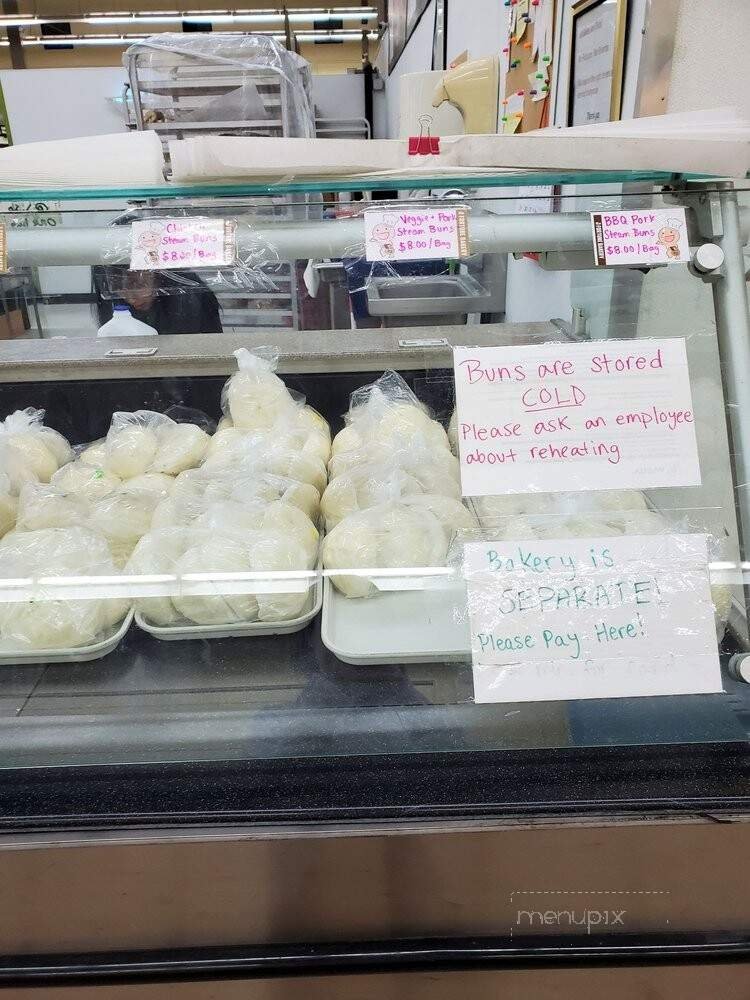 Steam Buns
$8.00/Bag
Veggie + Pork
Steam Buns
$8.00/Bag
BBQ Pork
Steam Buns
$8.00/Bag
Buns are stored
COLD
Please ask an employee
about reheating
Bakery is
SEPARATE!
Please Pay Here!
menupix